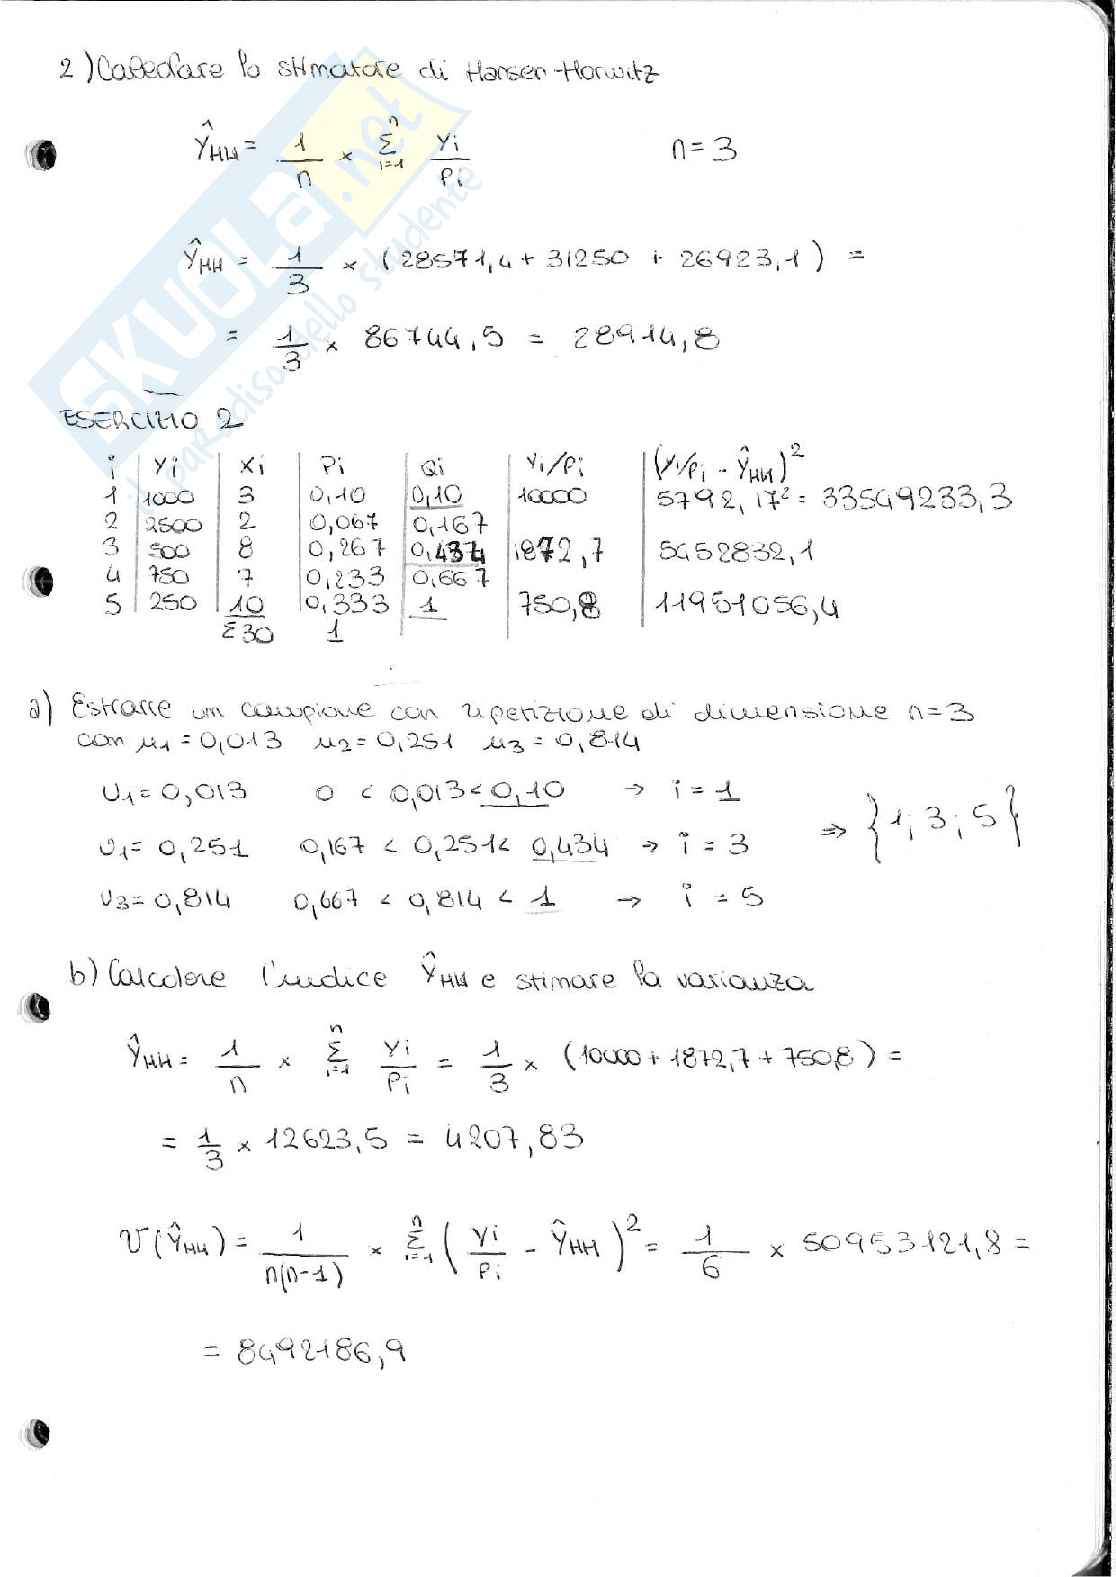 2) Calcolare lo stimatore di Hansen-Horwitz
ŶHH = 1/n × Σ(i=1, n) yi/pi    n = 3
ŶHH = 1/3 × (28571,4 + 31250 + 26923,1) =
= 1/3 × 86744,5 = 28914,8
SKUOLA.net
il paradiso dello studente
ESERCIZIO 2
i | yi | xi | Pi | Qi | yi/Pi | (yi/Pi - ŶHH)²
1 | 1000 | 3 | 0,10 | 0,10 | 10000 | 5792,17² = 33549233,3
2 | 2500 | 2 | 0,067 | 0,167
3 | 500 | 8 | 0,267 | 0,434 | 1872,7 | 5452832,1
4 | 750 | 7 | 0,233 | 0,667
5 | 250 | 10 | 0,333 | 1 | 750,8 | 11951056,4
Σ30 1
a) Estrarre un campione con ripetizione di dimensione n=3
con μ1 = 0,013 μ2 = 0,251 μ3 = 0,814
U1 = 0,013    0 < 0,013 < 0,10 → i = 1
U1 = 0,251    0,167 < 0,251 < 0,434 → i = 3 ⇒ {1; 3; 5}
U3 = 0,814    0,667 < 0,814 < 1 → i = 5
b) Calcolare l'indice ŶHH e stimare la varianza
ŶHH = 1/n × Σ(i=1, n) yi/pi = 1/3 × (10000 + 1872,7 + 750,8) =
= 1/3 × 12623,5 = 4207,83
V(ŶHH) = 1/n(n-1) × Σ(i=1, n) (yi/pi - ŶHH)² = 1/6 × 50953121,8 =
= 8492186,9